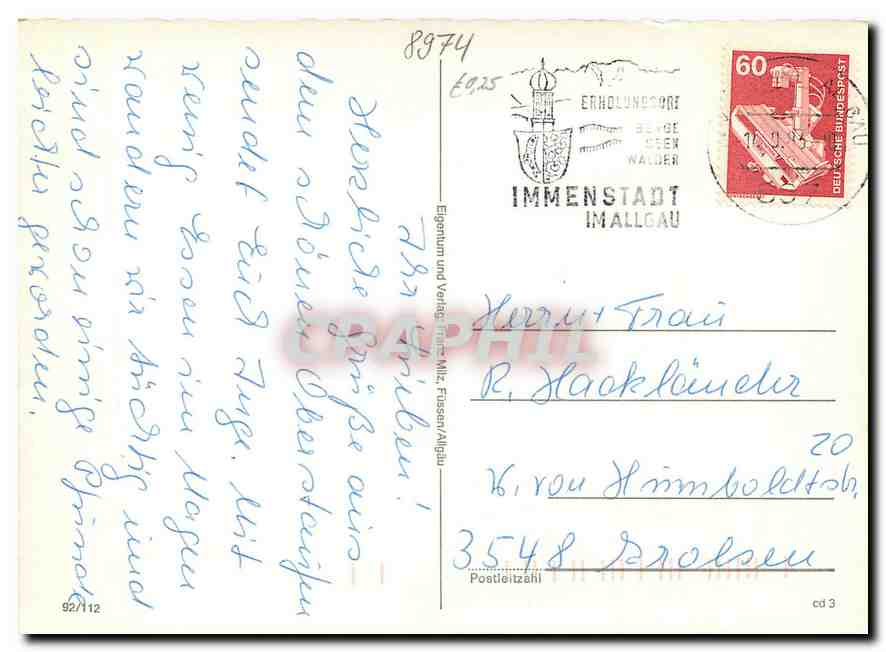 8974
€0,25
ERHOLUNGSORT
BERGE
SEEN
WÄLDER
IMMENSTADT
IM ALLGÄU
60
DEUTSCHE BUNDESPOST
Ihr Lieben!
Herzliche Grüße aus
dem schönen Oberstaufen
sendet Euch Inge. Mit
wenig Essen im Magen
wandern wir tüchtig und
sind schon einige Pfunde
leichter geworden.
Eigentum und Verlag: Franz Milz, Füssen/Allgäu
CPAPHIL
Herrn + Frau
R. Hackländer
20
W. von Humboldtstr.
3548 Arolsen
Postleitzahl
92/112
cd 3